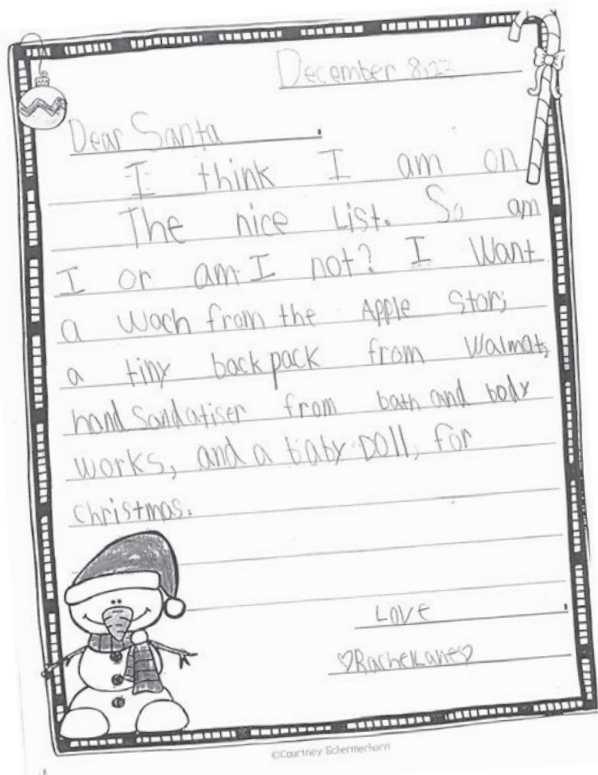 December 8,22
Dear Santa,
I think I am on
The nice List. So am
I or am I not? I Want
a wach from the Apple Stor,
a tiny backpack from Walmat,
hand Sandatiser from bath and body
works, and a baby Doll, for
christmas.
Love,
♡RachelLane♡
©Courtney Schermerhorn